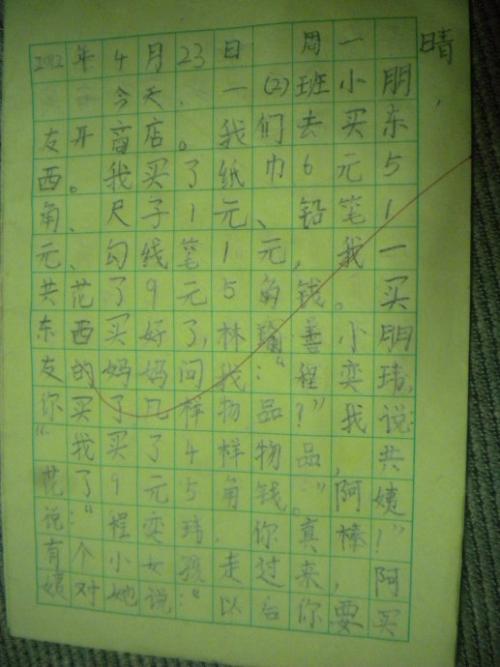 2012年4月23日 周一 晴
今天,一(2)班小朋
友开商店。我们去买东
西。我买了纸巾6元5
角、尺子1元、铅笔1
元、勾线笔1元,我一
共花了9元5角钱。买
东西买好了,林善小朋
友的妈妈问我:“程奕玮,
你买了几样物品?”我说
“我买了4样物品,共
花了9元5角钱。”阿姨
说:“程奕玮,你真棒!”
有个小女孩走过来,阿
姨对她说:“以后你要买